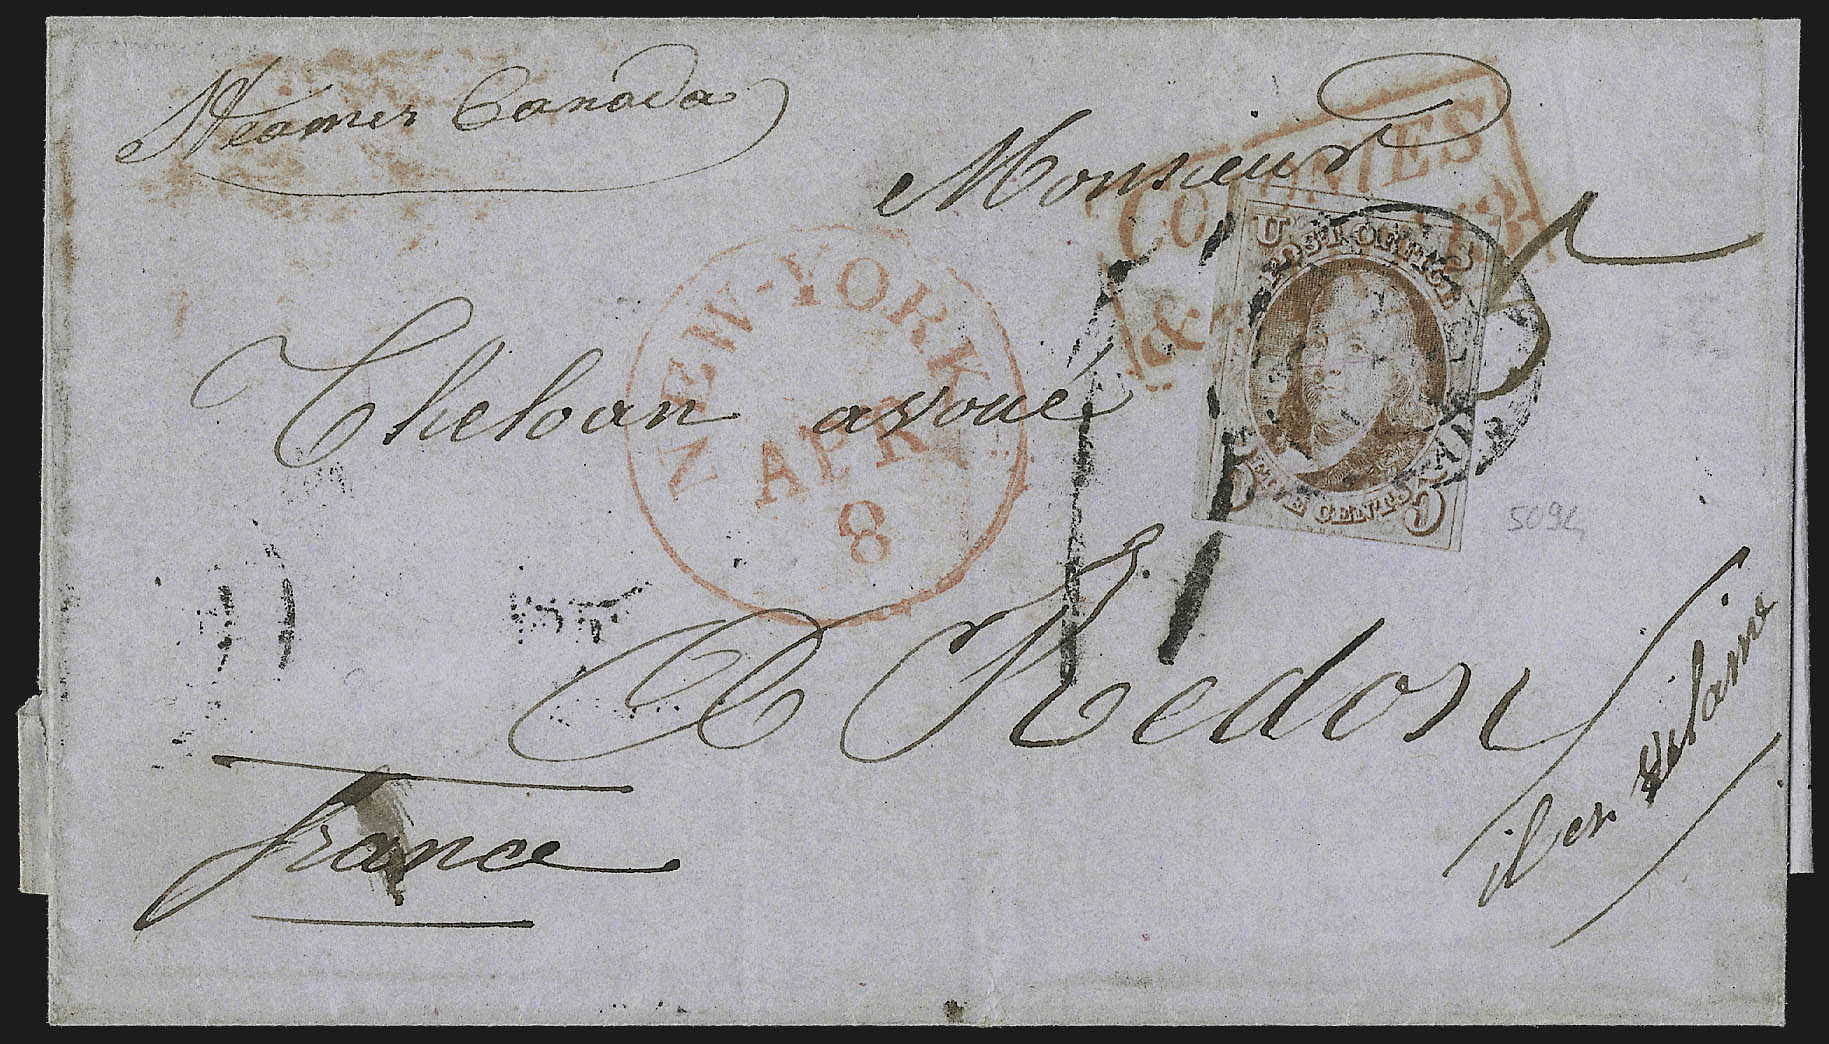 Steamer Canada
Monsieur
COLONIES
&c.
U S
POST OFFICE
FIVE CENTS
5 5
NEW-YORK
APR
8
Theloan avoué
5092
A Redon
ile en Vilaine
France